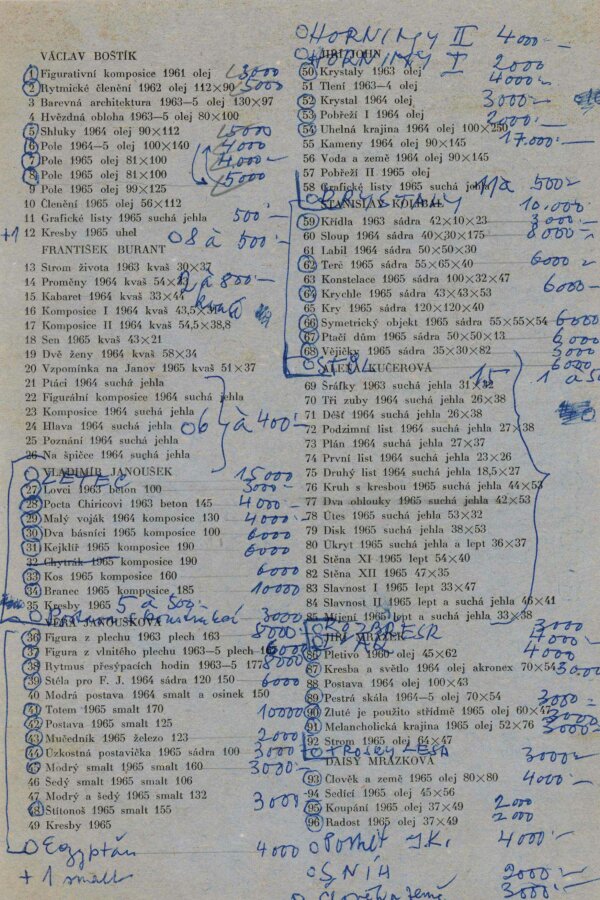 VÁCLAV BOŠTÍK
1 Figurativní komposice 1961 olej 3000
2 Rytmické členění 1962 olej 112×90 5000
3 Barevná architektura 1963—5 olej 130×97
4 Hvězdná obloha 1963—5 olej 80×100
5 Shluky 1964 olej 90×112 5000
6 Pole 1964—5 olej 100×140 4000
7 Pole 1965 olej 81×100 4000
8 Pole 1965 olej 81×100 5000
9 Pole 1965 olej 99×125
10 Členění 1965 olej 56×112
11 Grafické listy 1965 suchá jehla 500
+1 12 Kresby 1965 uhel 8 à 500
FRANTIŠEK BURANT
13 Strom života 1963 kvaš 30×37
14 Proměny 1964 kvaš 54× à 800
15 Kabaret 1964 kvaš 33×44
16 Komposice I 1964 kvaš 43,5×
17 Komposice II 1964 kvaš 54,5×38,8
18 Sen 1965 kvaš 43×21
19 Dvě ženy 1964 kvaš 58×34
20 Vzpomínka na Janov 1965 kvaš 51×37
21 Ptáci 1964 suchá jehla
22 Figurální komposice 1964 suchá jehla
23 Komposice 1964 suchá jehla
24 Hlava 1964 suchá jehla 6 à 400
25 Poznání 1964 suchá jehla
26 Na špičce 1964 suchá jehla
VLADIMÍR JANOUŠEK
LETEC 15000
27 Lovci 1963 beton 100 3000
28 Pocta Chiricovi 1963 beton 145 4000
29 Malý voják 1964 komposice 130 4000
30 Dva básníci 1965 komposice 100 6000
31 Kejklíř 1965 komposice 190 6000
32 Chytrák 1965 komposice 190
33 Kos 1965 komposice 160 6000
34 Branec 1965 komposice 185 10000
35 Kresby 1965 5 à 500
VĚRA JANOUŠKOVÁ 3000
36 Figura z plechu 1963 plech 163 8000
37 Figura z vlnitého plechu 1963—5 plech 6000
38 Rytmus přesýpacích hodin 1963—5 177 8000
39 Stéla pro F. J. 1964 sádra 120 150 6000
40 Modrá postava 1964 smalt a osinek 150
41 Totem 1965 smalt 170 10000
42 Postava 1965 smalt 125
43 Mučedník 1965 železo 123 2000
44 Úzkostná postavička 1965 sádra 100 3000
45 Modrý smalt 1965 smalt 160 3000
46 Šedý smalt 1965 smalt 106
47 Modrý a šedý 1965 smalt 132
48 Štítonoš 1965 smalt 155 3000
49 Kresby 1965
Egypťan 4000
+ 1 smalt
HORNINY II 4000
JIŘÍ JOHN
HORNINY I 2000
50 Krystaly 1963 olej
51 Tlení 1963—4 olej 4000
52 Krystal 1964 olej 3000
53 Pobřeží I 1964 olej
54 Uhelná krajina 1964 olej 100×250 2000
55 Kameny 1964 olej 90×145 17.000
56 Voda a země 1964 olej 90×145
57 Pobřeží II 1965 olej
58 Grafické listy 1965 suchá jehla 11 à 500
STANISLAV KOLÍBAL 10.000
59 Křídla 1963 sádra 42×10×23 3000
60 Sloup 1964 sádra 40×30×175 8000
61 Labil 1964 sádra 50×50×30
62 Terč 1965 sádra 55×65×40 6000
63 Konstelace 1965 sádra 100×32×47
64 Krychle 1965 sádra 43×43×53 6000
65 Kry 1965 sádra 120×120×40
66 Symetrický objekt 1965 sádra 55×55×54 6000
67 Ptačí dům 1965 sádra 50×50×13 3000
68 Vějičky 1965 sádra 35×30×82 3000
STŮL 6000
ALENA KUČEROVÁ 15
69 Šrafky 1963 suchá jehla 31×32
70 Tři zuby 1964 suchá jehla 26×38
71 Déšť 1964 suchá jehla 26×38
72 Podzimní list 1964 suchá jehla 27×38
73 Plán 1964 suchá jehla 27×37
74 První list 1964 suchá jehla 23×26
75 Druhý list 1964 suchá jehla 18,5×27
76 Kruh s kresbou 1965 suchá jehla 44×53
77 Dva oblouky 1965 suchá jehla 42×53
78 Útes 1965 suchá jehla 53×32
79 Disk 1965 suchá jehla 38×53
80 Úkryt 1965 suchá jehla a lept 36×37
81 Stěna XI 1965 lept 54×40
82 Stěna XII 1965 47×35
83 Slavnost I 1965 lept 33×47
84 Slavnost II 1965 lept a suchá jehla 46×41
85 Míjení 1965 lept a suchá jehla 33×38
3000
JIŘÍ MRÁZEK 4000
86 Pletivo 1960 olej 45×62 4000
87 Kresba a světlo 1964 olej akronex 70×54 3000
88 Postava 1964 olej 100×43
89 Pestrá skála 1964—5 olej 70×54 3000
90 Žluté je použito střídmě 1965 olej 60×47 3000
91 Melancholická krajina 1965 olej 52×76 3000
92 Strom 1965 olej 64×47
TROSKY LESA 3000
DAISY MRÁZKOVÁ
93 Člověk a země 1965 olej 80×80 4000
94 Sedící 1965 olej 45×56
95 Koupání 1965 olej 37×49 2000
96 Radost 1965 olej 37×49 2000
Portrét J.K. 4000
SNÍH 2000
Člověk a země 3000